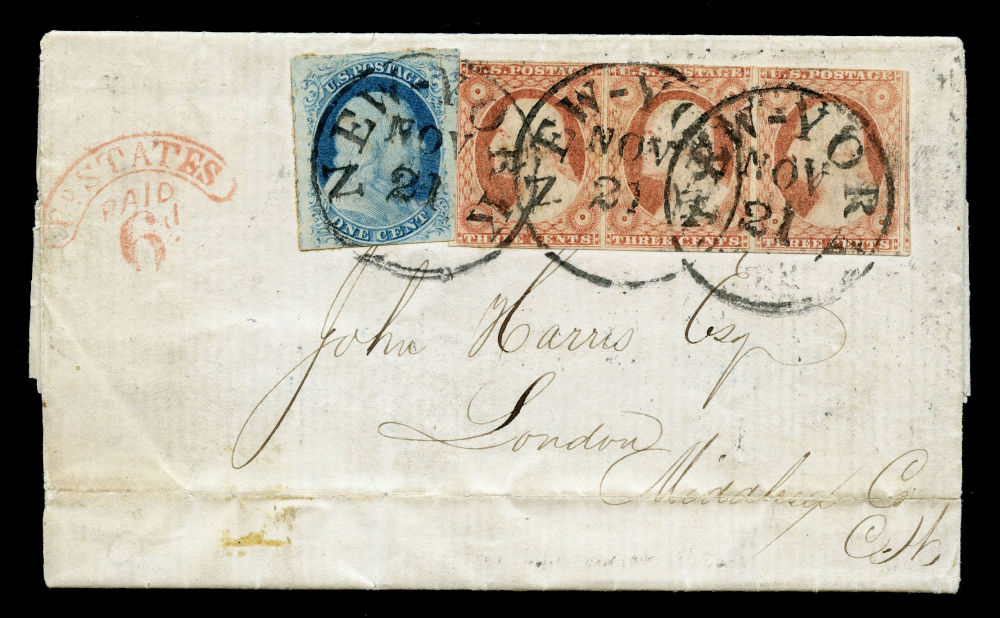 U.S. POSTAGE
ONE CENT
U.S. POSTAGE
THREE CENTS
U.S. POSTAGE
THREE CENTS
U.S. POSTAGE
THREE CENTS
NEW-YORK
NOV
21
NEW-YO
NOV
21
NEW-YORK
NOV
21
STATES
PAID
6d
John Harris Esq
London
Middlesex Co
C.W.